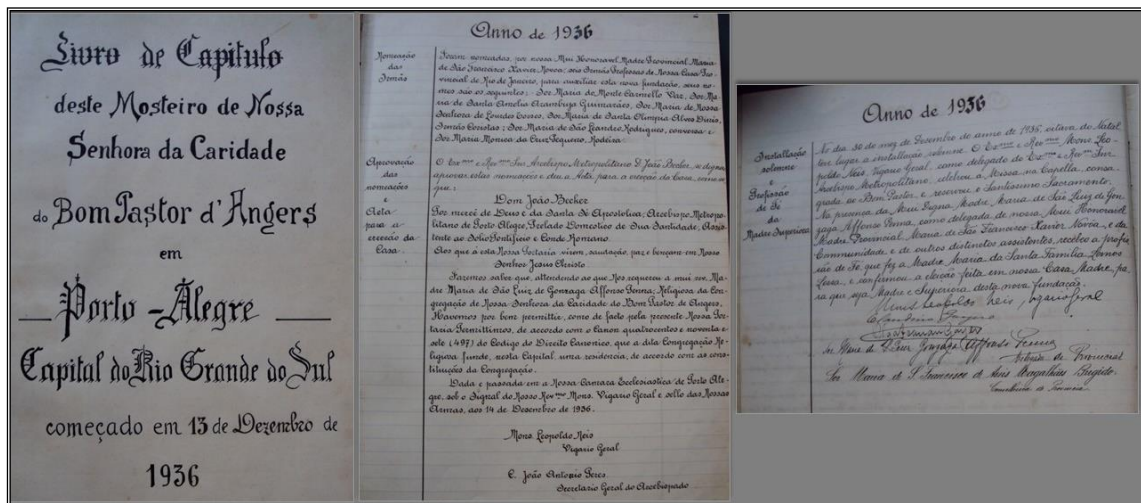 Livro de Capitulo
deste Mosteiro de Nossa
Senhora da Caridade
do Bom Pastor d'Angers
em
Porto-Alegre
Capital do Rio Grande do Sul
começado em 13 de Dezembro de
1936
Anno de 1936
Nomeação
das
Irmãs
Foram nomeadas, por nossa Mui Honoravel Madre Provincial Maria
de São Francisco Xavier Novôa: seis Irmãs Professas de Nossa Casa Pro-
vincial do Rio de Janeiro, para auxiliar esta nova fundação, seus no-
mes são os seguintes: Sor Maria do Monte Carmello Vaz, Sor Ma-
ria de Santa Amelia Guimarães, Sor Maria de Nossa
Senhora de Lourdes Torres, Sor Maria de Santa Olimpia Alves Diniz,
Irmãs Coristas; Sor Maria de São Leandro Rodrigues, conversa e
Sor Maria Monica da Cruz Rodeira
Aprovação
das
nomeações
e
Acta
para a
erecção da
Casa.
O Exmo e Revmo Snr Arcebispo Metropolitano D. João Becker, se dignou
aprovar estas nomeações e deu a Acta, para a erecção da Casa, como se-
gue:
Dom João Becker
Por mercê de Deus e da Santa Sé Apostolica, Arcebispo Metropo-
litano de Porto Alegre, Prelado Domestico de Sua Santidade, Assis-
tente ao Solio Pontificio e Conde Romano.
Aos que a esta Nossa Portaria virem, saudação, paz e bençam em Nosso
Senhor Jesus Christo
Fazemos saber que, attendendo ao que Nos requereu a mui rev. Ma-
dre Maria de São Luiz de Gonzaga Affonso Penna; Religiosa da Con-
gregação de Nossa Senhora da Caridade do Bom Pastor de Angers,
Havemos por bem permittir, como de facto pela presente Nossa Por-
taria Permittimos, de accordo com o Canon quatrocentos e noventa e
sete (497) do Codigo do Direito Canonico, que a dita Congregação Re-
ligiosa funde, nesta Capital, uma residencia, de accordo com as cons-
tituições da Congregação.
Dada e passada em a Nossa Camara Ecclesiastica de Porto Ale-
gre, sob o Signal do Nosso Revmo Mons. Vigario Geral e sello das Nossas
Armas, aos 14 de Dezembro de 1936.
Mons Leopoldo Neis
Vigario Geral
C. João Antonio Peres
Secretario Geral do Arcebispado
Anno de 1936
Installação
solemne
e
Profissão
de Fé
da
Madre Superiora
No dia 30 do mez de Dezembro do anno de 1936, oitava do Natal
teve lugar a installação solemne. O Exmo e Revmo Mons Leo-
poldo Neis, Vigario Geral, como delegado do Exmo e Revmo Snr
Arcebispo Metropolitano, celebrou a Missa na Capella, consa-
grada ao Bom Pastor, e reservou o Santissimo Sacramento.
Na presença da Mui Digna Madre Maria de São Luiz de Gon-
zaga Affonso Penna, como delegada de nossa Mui Honoravel
Madre Provincial Maria de São Francisco Xavier Novôa, e da
Communidade e de outros distinctos assistentes, recebeu a profis-
são de Fé, que fez a Madre Maria da Santa Familia Lemos
e confirmou a eleição feita em nossa Casa Madre, pa-
ra que seja Madre e Superiora desta nova fundação.
Mons Leopoldo Neis, Vigario Geral
Sor Maria de S. Luiz Gonzaga Affonso Penna
Provincial
Sor Maria de S. Francisco de Assis Magalhães Brigido